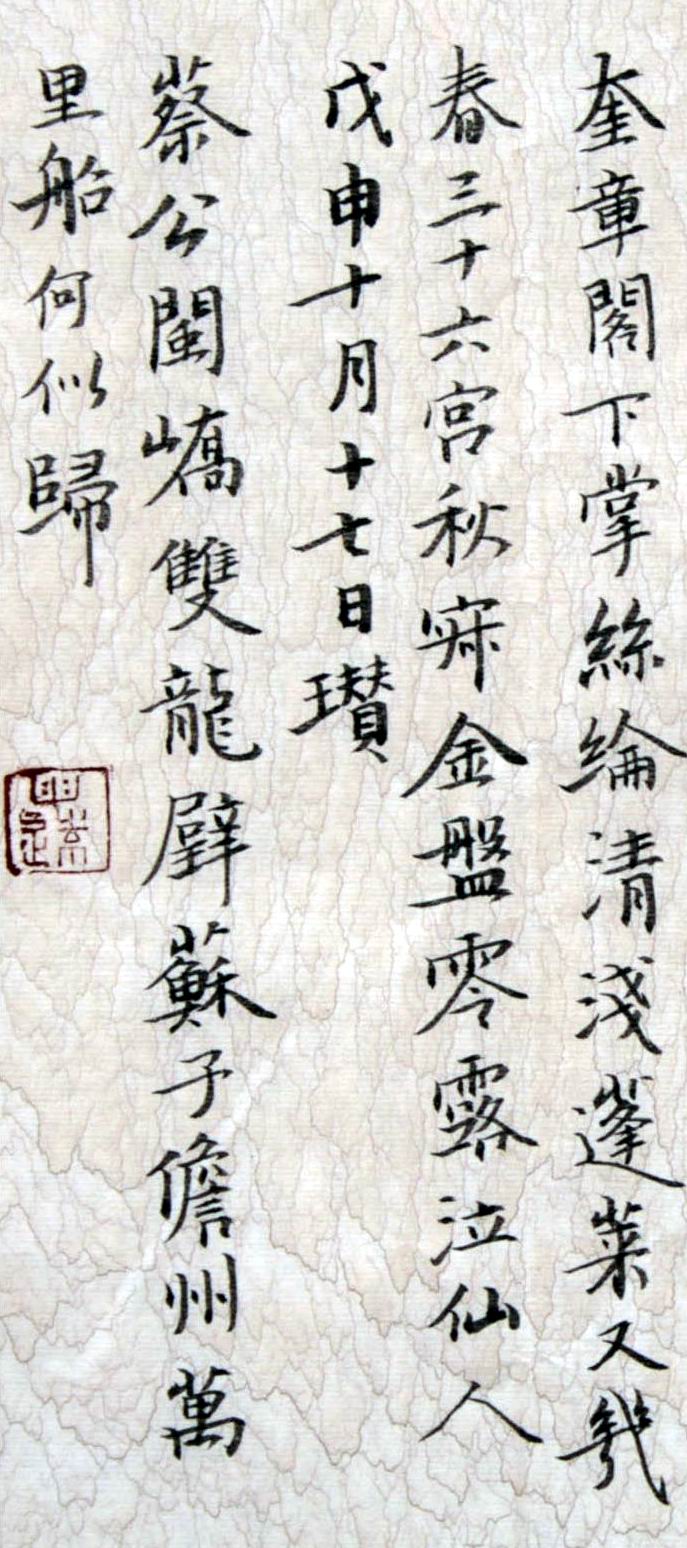 奎章閣下掌絲綸清淺蓬萊又幾
春三十六宮秋寂金盤零露泣仙人
戊申十月十七日瓚
蔡公閩嶠雙龍璧蘇子儋州萬
里船何似歸